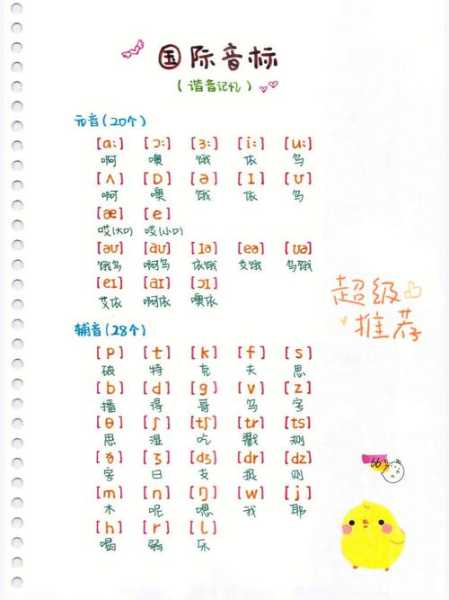 国际音标
(谐音记忆)
元音(20个)
[ɑː] [ɔː] [ɜː] [iː] [uː]
啊 噢 饿 依 乌
[ʌ] [ɒ] [ə] [ɪ] [ʊ]
啊 噢 饿 依 乌
[æ] [e]
哎(大口) 哎(小口)
[əʊ] [aʊ] [ɪə] [eə] [ʊə]
饿乌 啊乌 依饿 艾饿 乌饿
[eɪ] [aɪ] [ɔɪ]
艾依 啊依 噢依
超级
推荐
辅音(28个)
[p] [t] [k] [f] [s]
破 特 克 夫 思
[b] [d] [g] [v] [z]
播 得 哥 乌 字
[θ] [ʃ] [tʃ] [tr] [ts]
思 湿 吃 戳 测
[ð] [ʒ] [dʒ] [dr] [dz]
字 日 支 捉 则
[m] [n] [ŋ] [w] [j]
木 呢 嗯 我 耶
[h] [r] [l]
喝 弱 乐